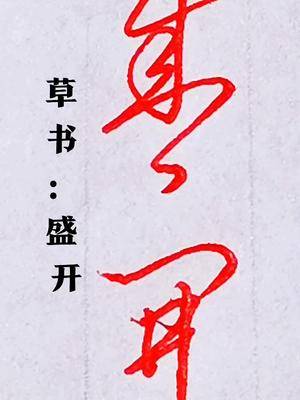 草书:盛开
盛開